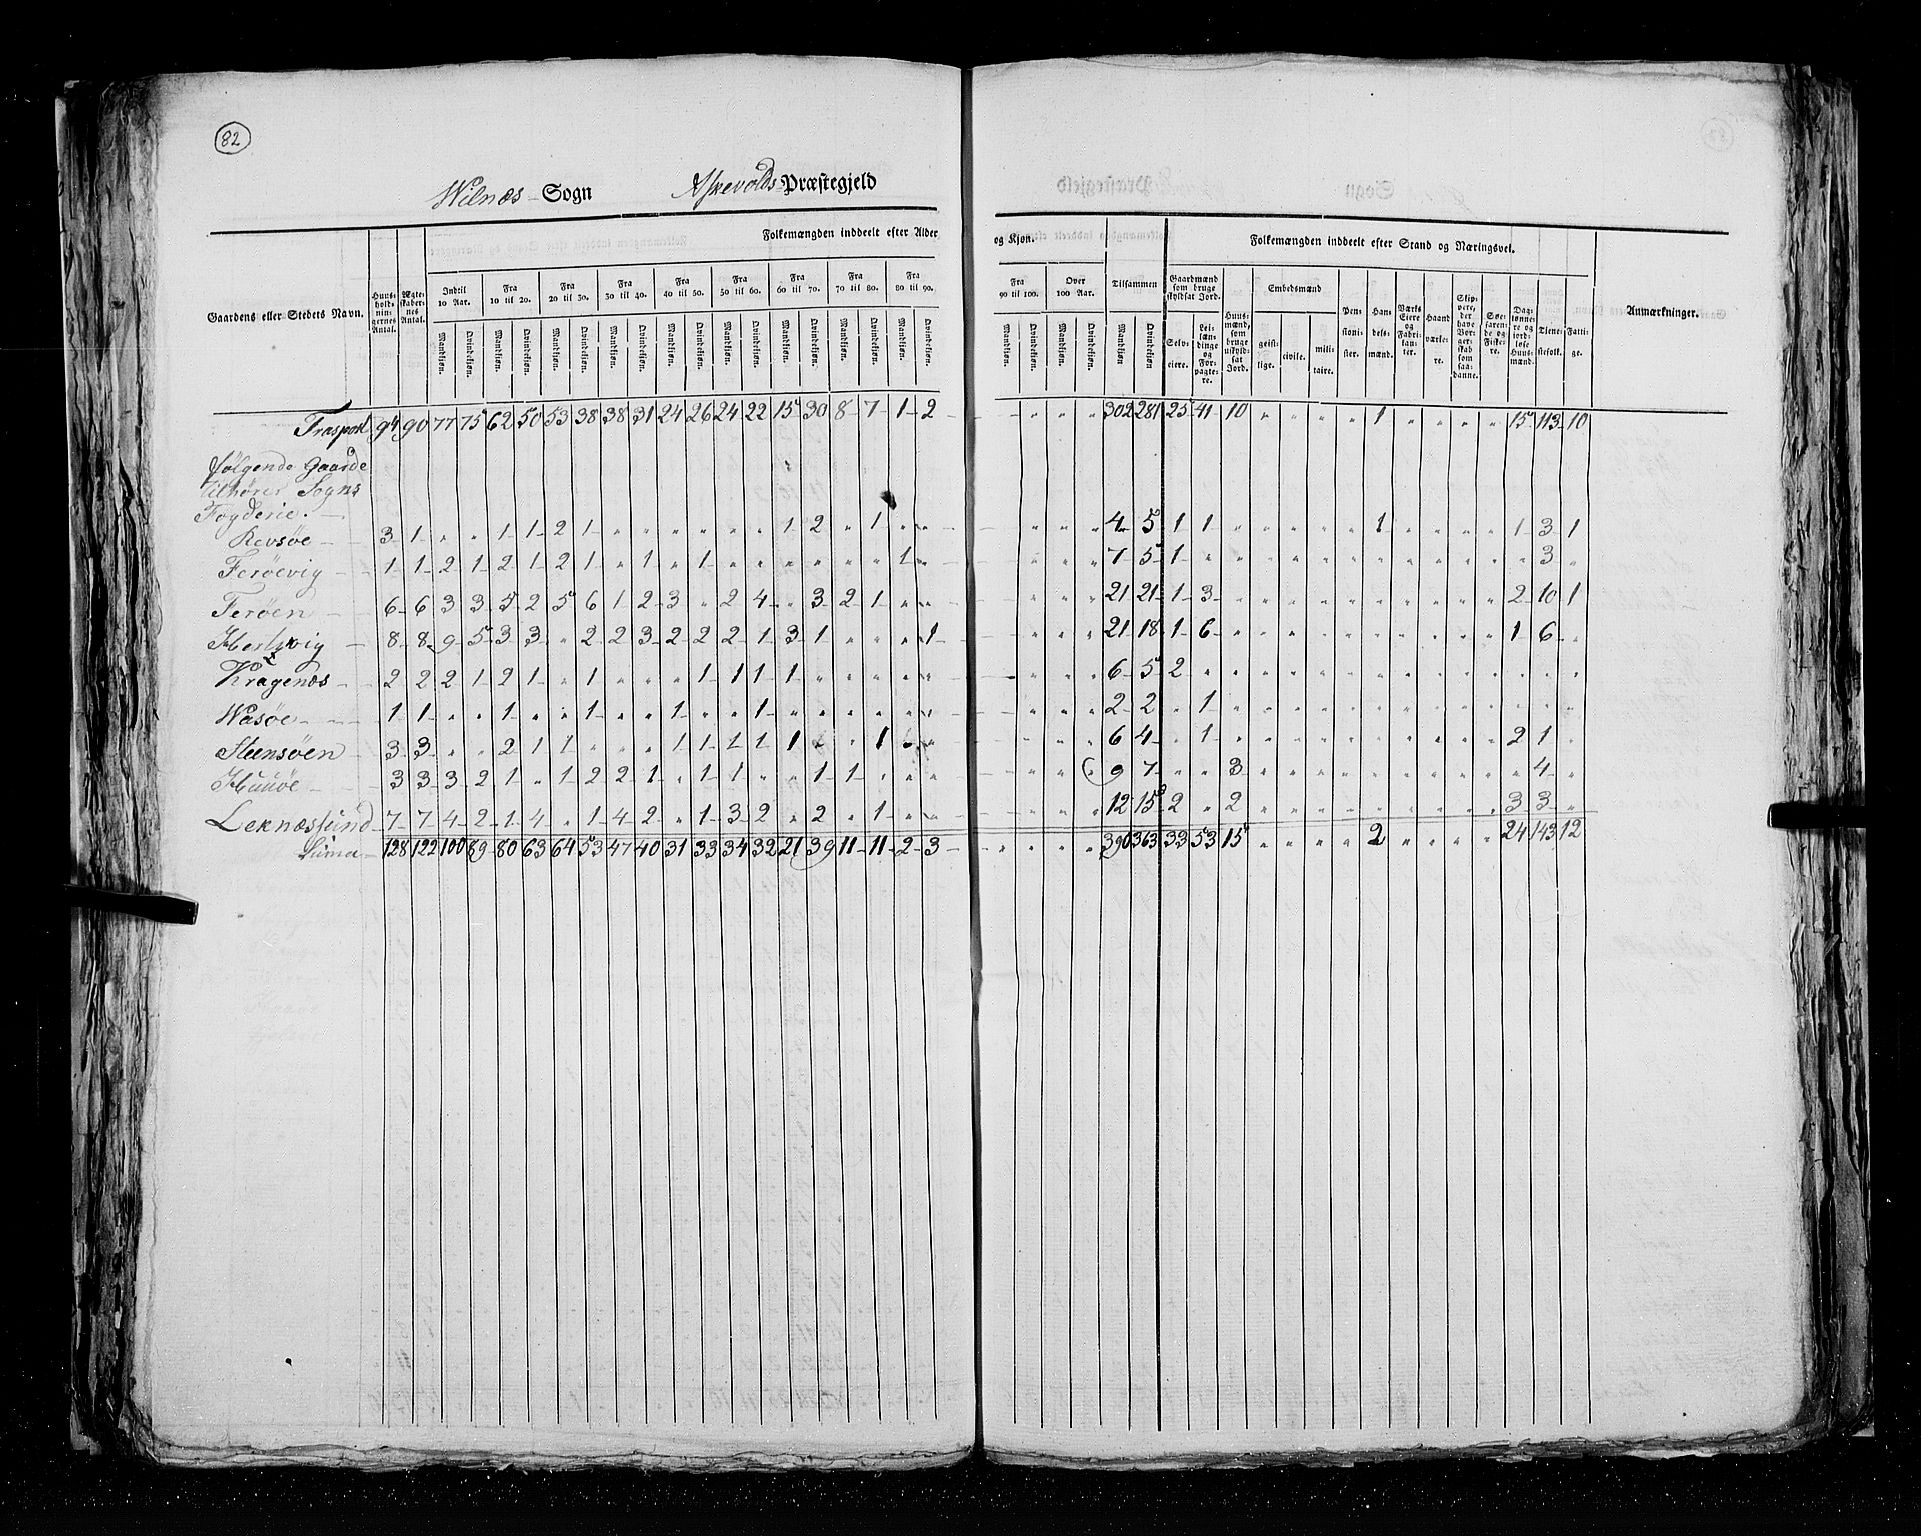 82
Wilnæs Sogn Askevolds Præstegjeld
Folkemængden inddeelt efter Alder og Kjøn.
Folkemængden inddeelt efter Stand og Næringsvei.
Gaardens eller Stedets Navn. Huusholdningernes Antal. Ægteskabernes Antal.
Indtil 10 Aar. Fra 10 til 20. Fra 20 til 30. Fra 30 til 40. Fra 40 til 50. Fra 50 til 60. Fra 60 til 70. Fra 70 til 80. Fra 80 til 90. Fra 90 til 100. Over 100 Aar. Tilsammen
Mandkjøn. Qvindekjøn. Mandkjøn. Qvindekjøn. Mandkjøn. Qvindekjøn. Mandkjøn. Qvindekjøn. Mandkjøn. Qvindekjøn. Mandkjøn. Qvindekjøn. Mandkjøn. Qvindekjøn. Mandkjøn. Qvindekjøn. Mandkjøn. Qvindekjøn. Mandkjøn. Qvindekjøn. Mandkjøn. Qvindekjøn. Mandkjøn Qvindekjøn
Gaardmænd som bruge skyldsat Jord. Selveiere. Leilændinge og Forpagtere. Huusmænd, som bruge uskyldsat Jord. Embedsmænd geistlige. civile. militaire. Pensionister. Handelsmænd. Værks Eiere og Fabrikanter. Haandværkere. Skippere, der have Borgerskab som saadanne. Søefarende og Fiskere. Dagtønnere og jordløse Huusmænd. Tjenestefolk. Fattige. Anmærkninger.
Trasport 94 90 77 75 62 50 53 38 38 31 24 26 24 22 15 30 8 7 1 2 " " " " 302 281 25 41 10 " " " " 1 " " " " 15 113 10
følgende Gaarde
tilhører Sogns
Fogderie.
Revsøe 3 1 " " 1 1 2 1 " " " " " " 1 2 " 1 " " " " " " 4 5 1 1 " " " " " 1 " " " " 1 3 1
Ferøevig 1 1 2 1 2 1 2 1 " 1 " 1 " " " " " " 1 " " " " " 7 5 1 " " " " " " " " " " " " 3 "
Ferøen 6 6 3 3 5 2 5 6 1 2 3 " 2 4 " 3 2 1 " " " " " " 21 21 1 3 " " " " " " " " " " 2 10 1
Herlevig 8 8 9 5 3 3 " 2 2 3 2 2 2 1 3 1 " " " 1 " " " " 21 18 1 6 " " " " " " " " " " 1 6 "
Kragenæs 2 2 2 1 2 1 " 1 " " " 1 1 1 1 " " " " " " " " " 6 5 2 " " " " " " " " " " " " " "
Wasøe 1 1 " " 1 " " 1 " " 1 " " 1 " " " " " " " " " " 2 2 " 1 " " " " " " " " " " " " "
Steensøen 3 3 " " 2 1 1 " " " 1 1 1 1 1 " " 1 " " " " " " 6 4 " 1 " " " " " " " " " " 2 1 "
Huuøe 3 3 3 2 1 " 1 2 2 1 " 1 1 " " 1 1 " " " " " " " 9 7 " " 3 " " " " " " " " " " 4 "
Leknæssund 7 7 4 2 1 4 " 1 4 2 " 1 3 2 " 2 " 1 " " " " " " 12 15 2 " 2 " " " " " " " " " 3 3 "
Suma 128 122 100 89 80 63 64 53 47 40 31 33 34 32 21 39 11 11 2 3 " " " " 390 363 33 53 15 " " " " 2 " " " " 24 143 12